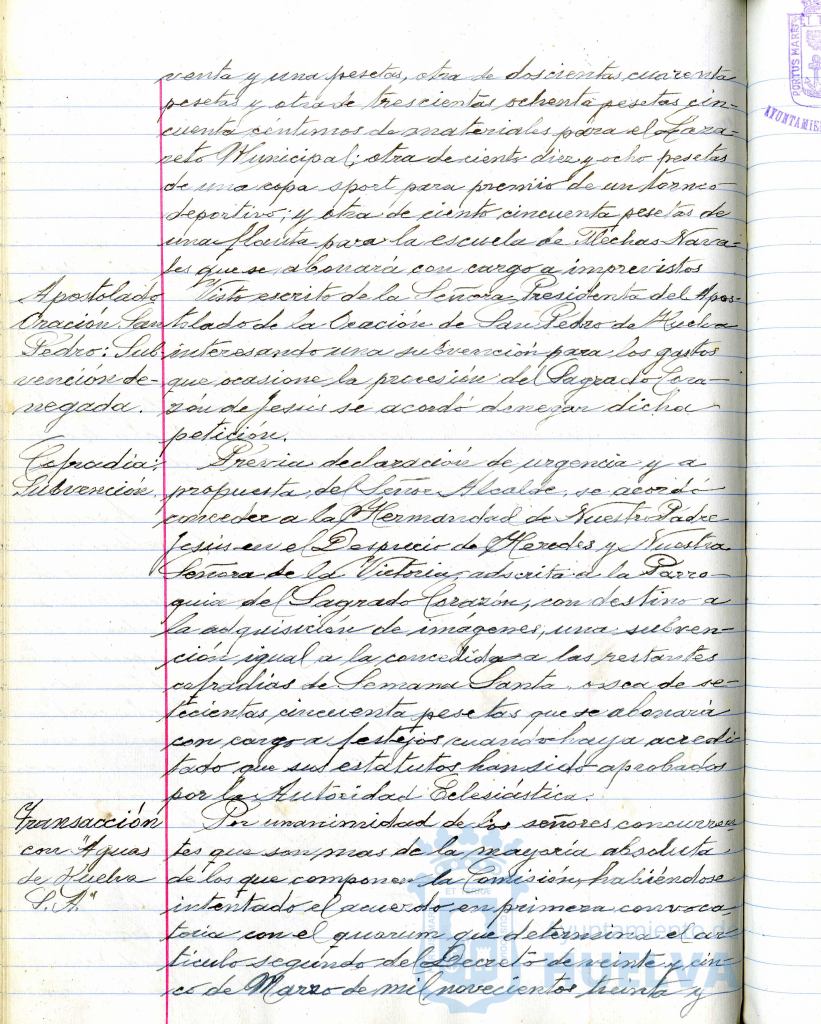 venta y una pesetas, otra de doscientas cuarenta
pesetas y otra de trescientas ochenta pesetas cin-
cuenta céntimos de materiales para el Laza-
reto Municipal; otra de ciento diez y ocho pesetas
de una copa sport para premio de un torneo
deportivo; y otra de ciento cincuenta pesetas de
una flauta para la escuela de Flechas Nava-
les que se abonará con cargo a imprevistos
Apostolado
Oración San
Pedro: Sub
vención de-
negada.
Visto escrito de la Señora Presidenta del Apos-
tolado de la Oración de San Pedro de Huelva
interesando una subvención para los gastos
que ocasione la procesión del Sagrado Cora-
zón de Jesús se acordó denegar dicha
petición.
Cofradía:
Subvención.
Previa declaración de urgencia y a
propuesta del Señor Alcalde, se acordó
conceder a la Hermandad de Nuestro Padre
Jesús en el Desprecio de Herodes y Nuestra
Señora de la Victoria, adscrita a la Parro-
quia del Sagrado Corazón, con destino a
la adquisición de imágenes, una subven-
ción igual a la concedida a las restantes
cofradías de Semana Santa, o sea de se-
tecientas cincuenta pesetas que se abonará
con cargo a festejos cuando haya acredi-
tado que sus estatutos han sido aprobados
por la Autoridad Eclesiástica.
Transacción
con "Aguas
de Huelva
S.A."
Por unanimidad de los señores concurren-
tes que son mas de la mayoría absoluta
de los que componen la Comisión, habiéndose
intentado el acuerdo en primera convoca-
toria con el quorum que determina el ar-
tículo segundo del Decreto de veinte y cin-
co de Marzo de mil novecientos treinta y
PORTUS MARIS
AYUNTAMIE
Ayuntamiento de
HUELVA